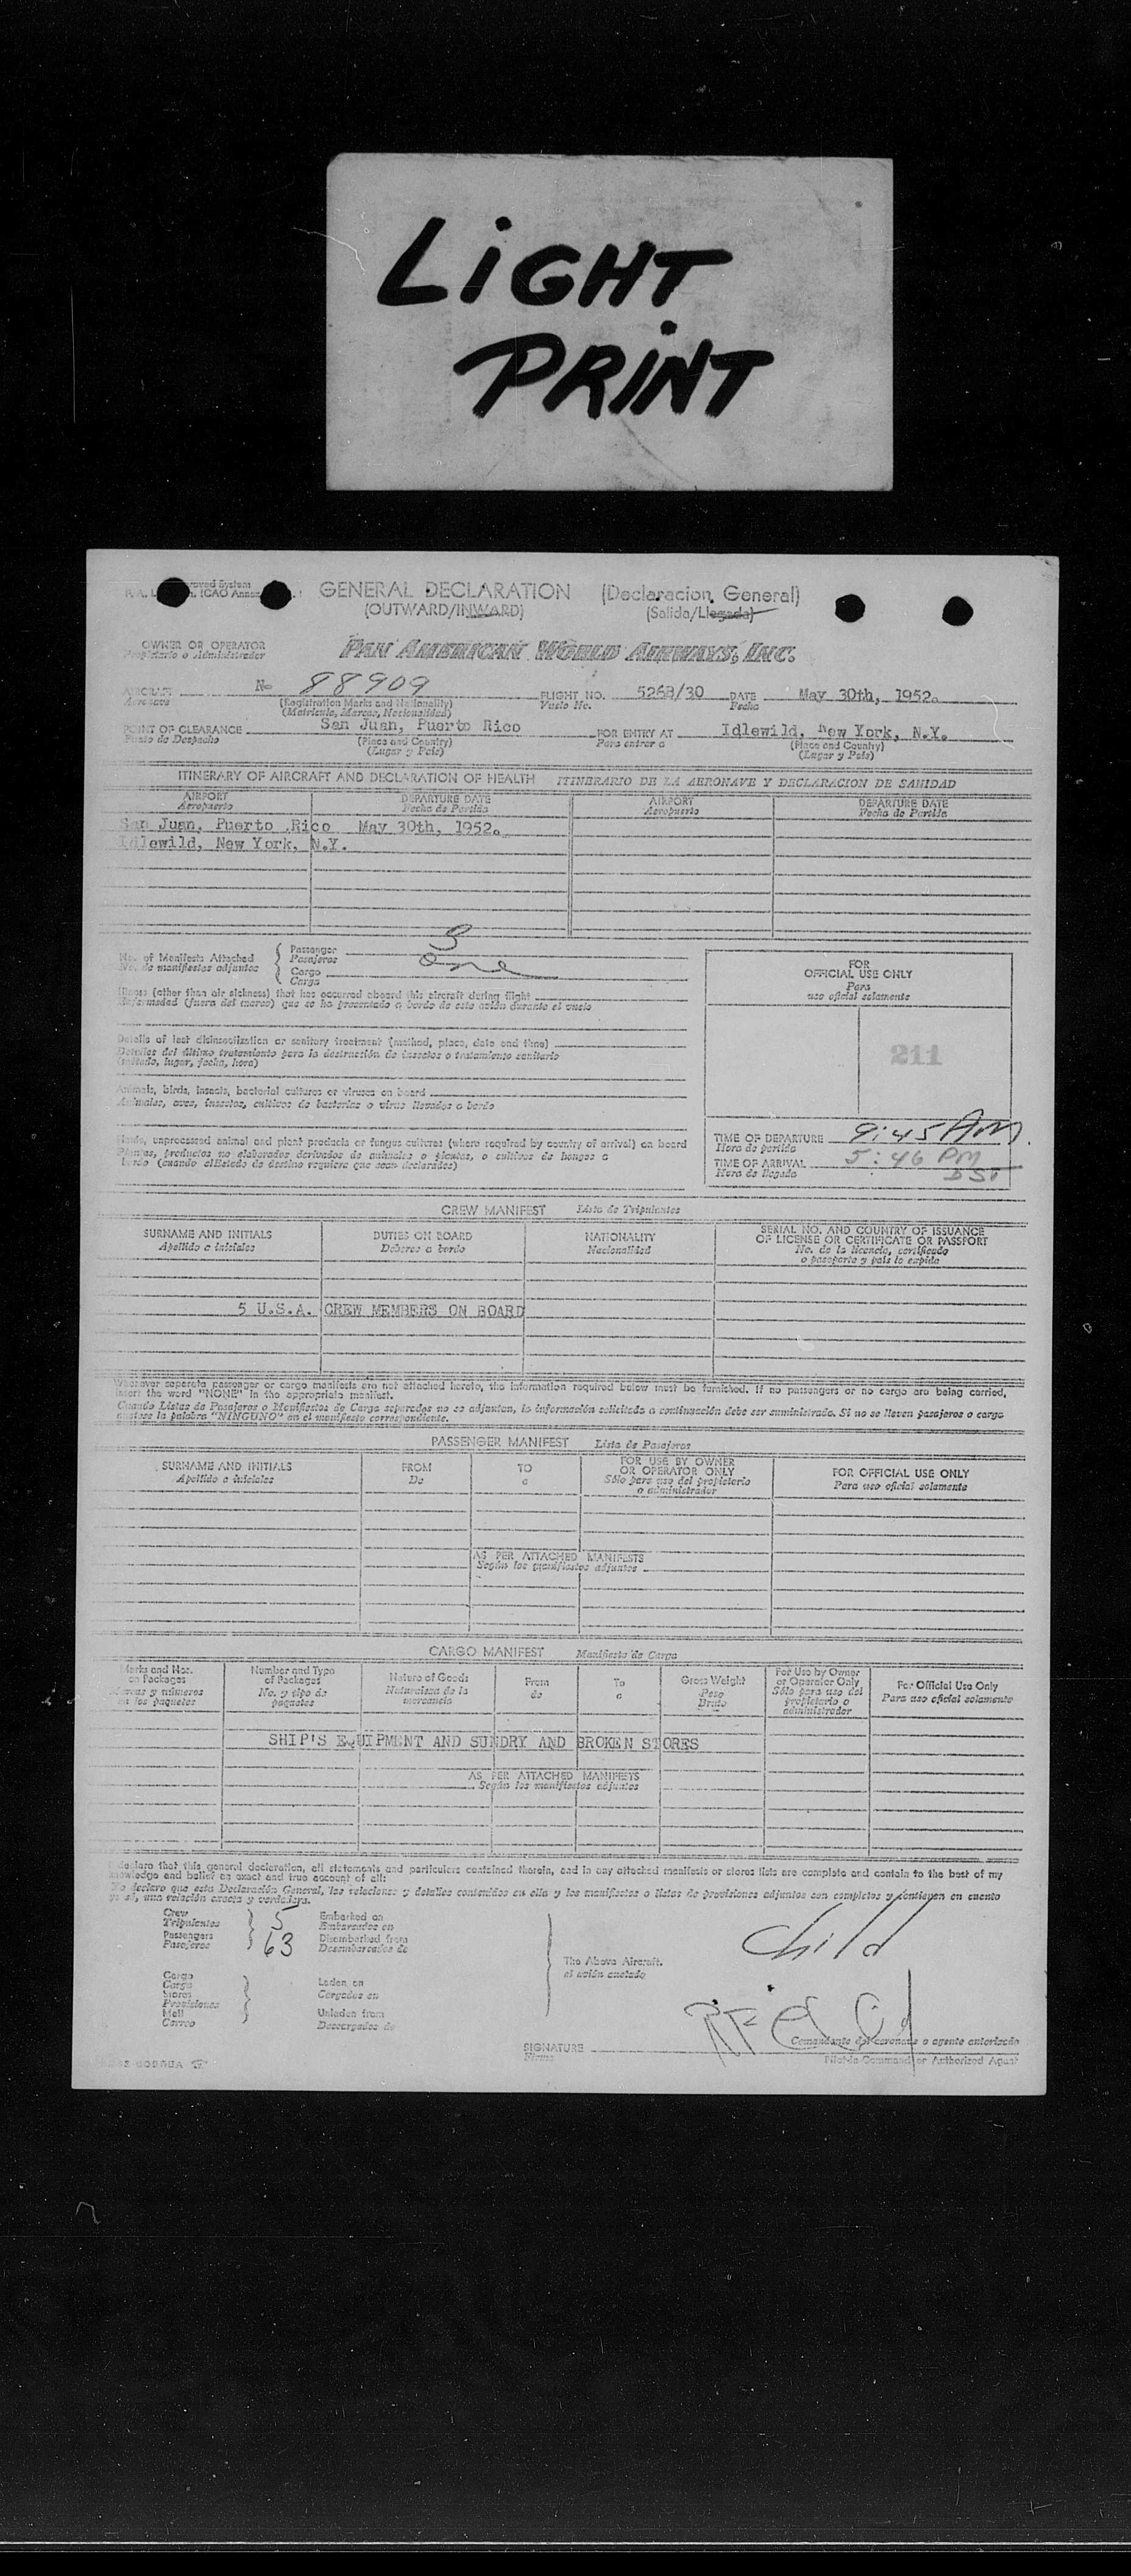 LiGHT
PRiNT
GENERAL DECLARATION (Declaracion General)
(OUTWARD/INWARD) (Salida/Llegada)
OWNER OR OPERATOR
Propietario o Administrador
PAN AMERICAN WORLD AIRWAYS, INC.
AIRCRAFT No 88909 FLIGHT NO. 526B/30 DATE May 30th, 1952.
Aeronave (Registration Marks and Nationality) Vuelo No. Fecha
(Matricula, Marcas, Nacionalidad)
POINT OF CLEARANCE San Juan, Puerto Rico FOR ENTRY AT Idlewild, New York, N.Y.
Punto de Despacho (Place and Country) Para entrar a (Place and Country)
(Lugar y Pais) (Lugar y Pais)
ITINERARY OF AIRCRAFT AND DECLARATION OF HEALTH ITINERARIO DE LA AERONAVE Y DECLARACION DE SANIDAD
AIRPORT DEPARTURE DATE AIRPORT DEPARTURE DATE
Aeropuerto Fecha de Partida Aeropuerto Fecha de Partida
San Juan, Puerto Rico May 30th, 1952.
Idlewild, New York, N.Y.
No. of Manifests Attached Passenger 3
No. de manifiestos adjuntos Pasajeros
Cargo one
Carga
FOR
OFFICIAL USE ONLY
Para
uso oficial solamente
211
Illness (other than air sickness) that has occurred aboard this aircraft during flight
Enfermedad (fuera del mareo) que se ha presentado a bordo de este avión durante el vuelo
Details of last disinsectization or sanitary treatment (method, place, date and time)
Detalles del último tratamiento para la destrucción de insectos o tratamiento sanitario
(método, lugar, fecha, hora)
Animals, birds, insects, bacterial cultures or viruses on board
Animales, aves, insectos, cultivos de bacterias o virus llevados a bordo
Plants, unprocessed animal and plant products or fungus cultures (where required by country of arrival) on board
Plantas, productos no elaborados derivados de animales o plantas, o cultivos de hongos a
bordo (cuando el Estado de destino requiera que sean declarados)
TIME OF DEPARTURE 9:45 AM.
Hora de partida
TIME OF ARRIVAL 5:46 PM
Hora de llegada DST
CREW MANIFEST Lista de Tripulantes
SURNAME AND INITIALS DUTIES ON BOARD NATIONALITY SERIAL NO. AND COUNTRY OF ISSUANCE
Apellido e iniciales Deberes a bordo Nacionalidad OF LICENSE OR CERTIFICATE OR PASSPORT
No. de la licencia, certificado
o pasaporte y pais lo expida
5 U.S.A. CREW MEMBERS ON BOARD
Whenever separate passenger or cargo manifests are not attached hereto, the information required below must be furnished. If no passengers or no cargo are being carried,
insert the word "NONE" in the appropriate manifest.
Cuando Listas de Pasajeros o Manifiestos de Carga separados no se adjuntan, la información solicitada a continuación debe ser suministrada. Si no se lleven pasajeros o carga
anótese la palabra "NINGUNO" en el manifiesto correspondiente.
PASSENGER MANIFEST Lista de Pasajeros
SURNAME AND INITIALS FROM TO FOR USE BY OWNER OR OPERATOR ONLY FOR OFFICIAL USE ONLY
Apellido e iniciales De a Sólo para uso del propietario o administrador Para uso oficial solamente
AS PER ATTACHED MANIFESTS
Según los manifiestos adjuntos
CARGO MANIFEST Manifiesto de Carga
Marks and Nos. on Packages Number and Type of Packages Nature of Goods From To Gross Weight For Use by Owner or Operator Only For Official Use Only
Marcas y números en los paquetes No. y tipo de paquetes Naturaleza de la mercancia de a Peso Bruto Sólo para uso del propietario o administrador Para uso oficial solamente
SHIP'S EQUIPMENT AND SUNDRY AND BROKEN STORES
AS PER ATTACHED MANIFESTS
Según los manifiestos adjuntos
I declare that this general declaration, all statements and particulars contained therein, and in any attached manifest or stores lists are complete and contain to the best of my
knowledge and belief an exact and true account of all:
Yo declaro que esta Declaración General, las relaciones y detalles contenidos en ella y los manifiestos o listas de provisiones adjuntos son completos y contienen en cuanto
yo sé, una relación exacta y verdadera.
Crew 5 Embarked on
Tripulantes Embarcados en
Passengers 63 Disembarked from
Pasajeros Desembarcados de
Cargo
Carga Laden on
Stores Cargados en
Provisiones
Mail Unladen from
Correo Descargados de
The Above Aircraft.
el avión anotado
Child
SIGNATURE
Firma
Comandante del aeronave o agente autorizado
Pilot-in-Command or Authorized Agent